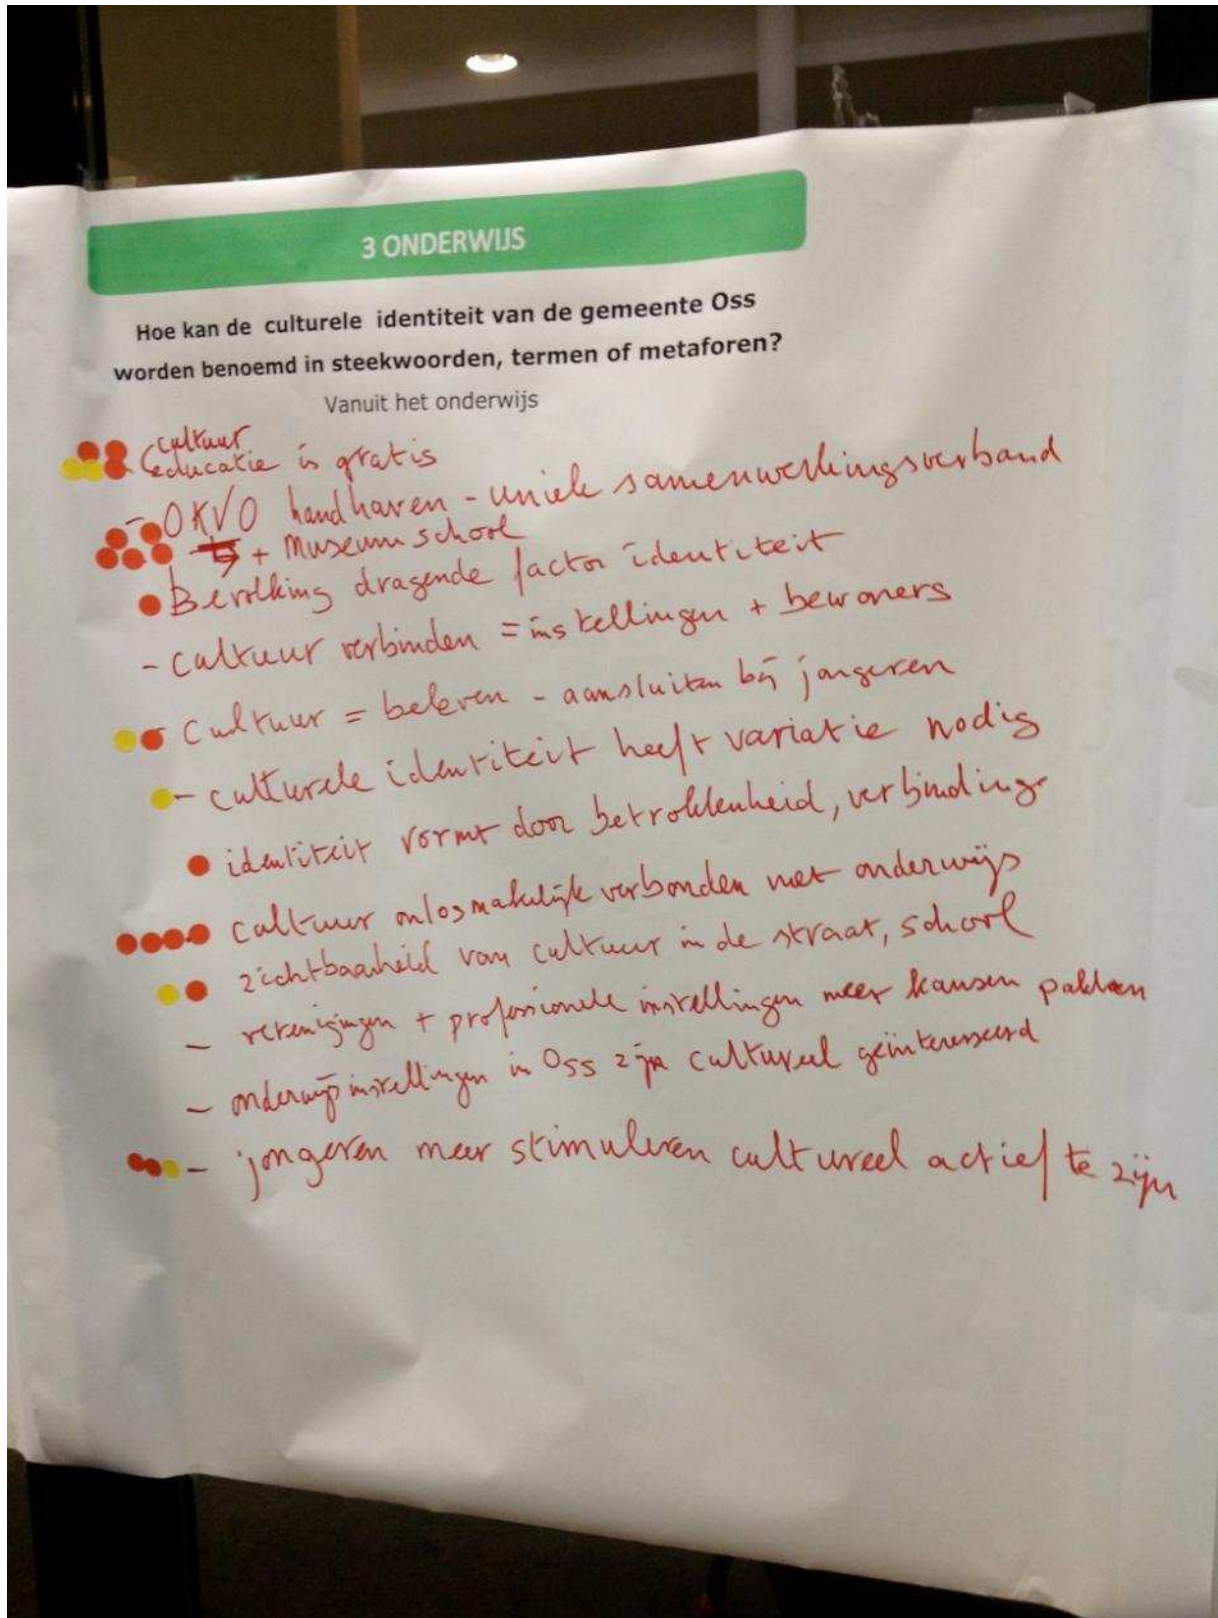 3 ONDERWIJS
Hoe kan de culturele identiteit van de gemeente Oss
worden benoemd in steekwoorden, termen of metaforen?
Vanuit het onderwijs
cultuur
educatie is gratis
- OKVO handhaven - uniek samenwerkingsverband
+ Museumschool
Bevolking dragende factor identiteit
- cultuur verbinden = instellingen + bewoners
cultuur = beleven - aansluiten bij jongeren
- culturele identiteit heeft variatie nodig
identiteit vormt door betrokkenheid, verbinding
cultuur onlosmakelijk verbonden met onderwijs
zichtbaarheid van cultuur in de straat, school
- verenigingen + professionele instellingen meer kansen pakken
- onderwijsinstellingen in Oss zijn cultureel geïnteresseerd
- jongeren meer stimuleren cultureel actief te zijn